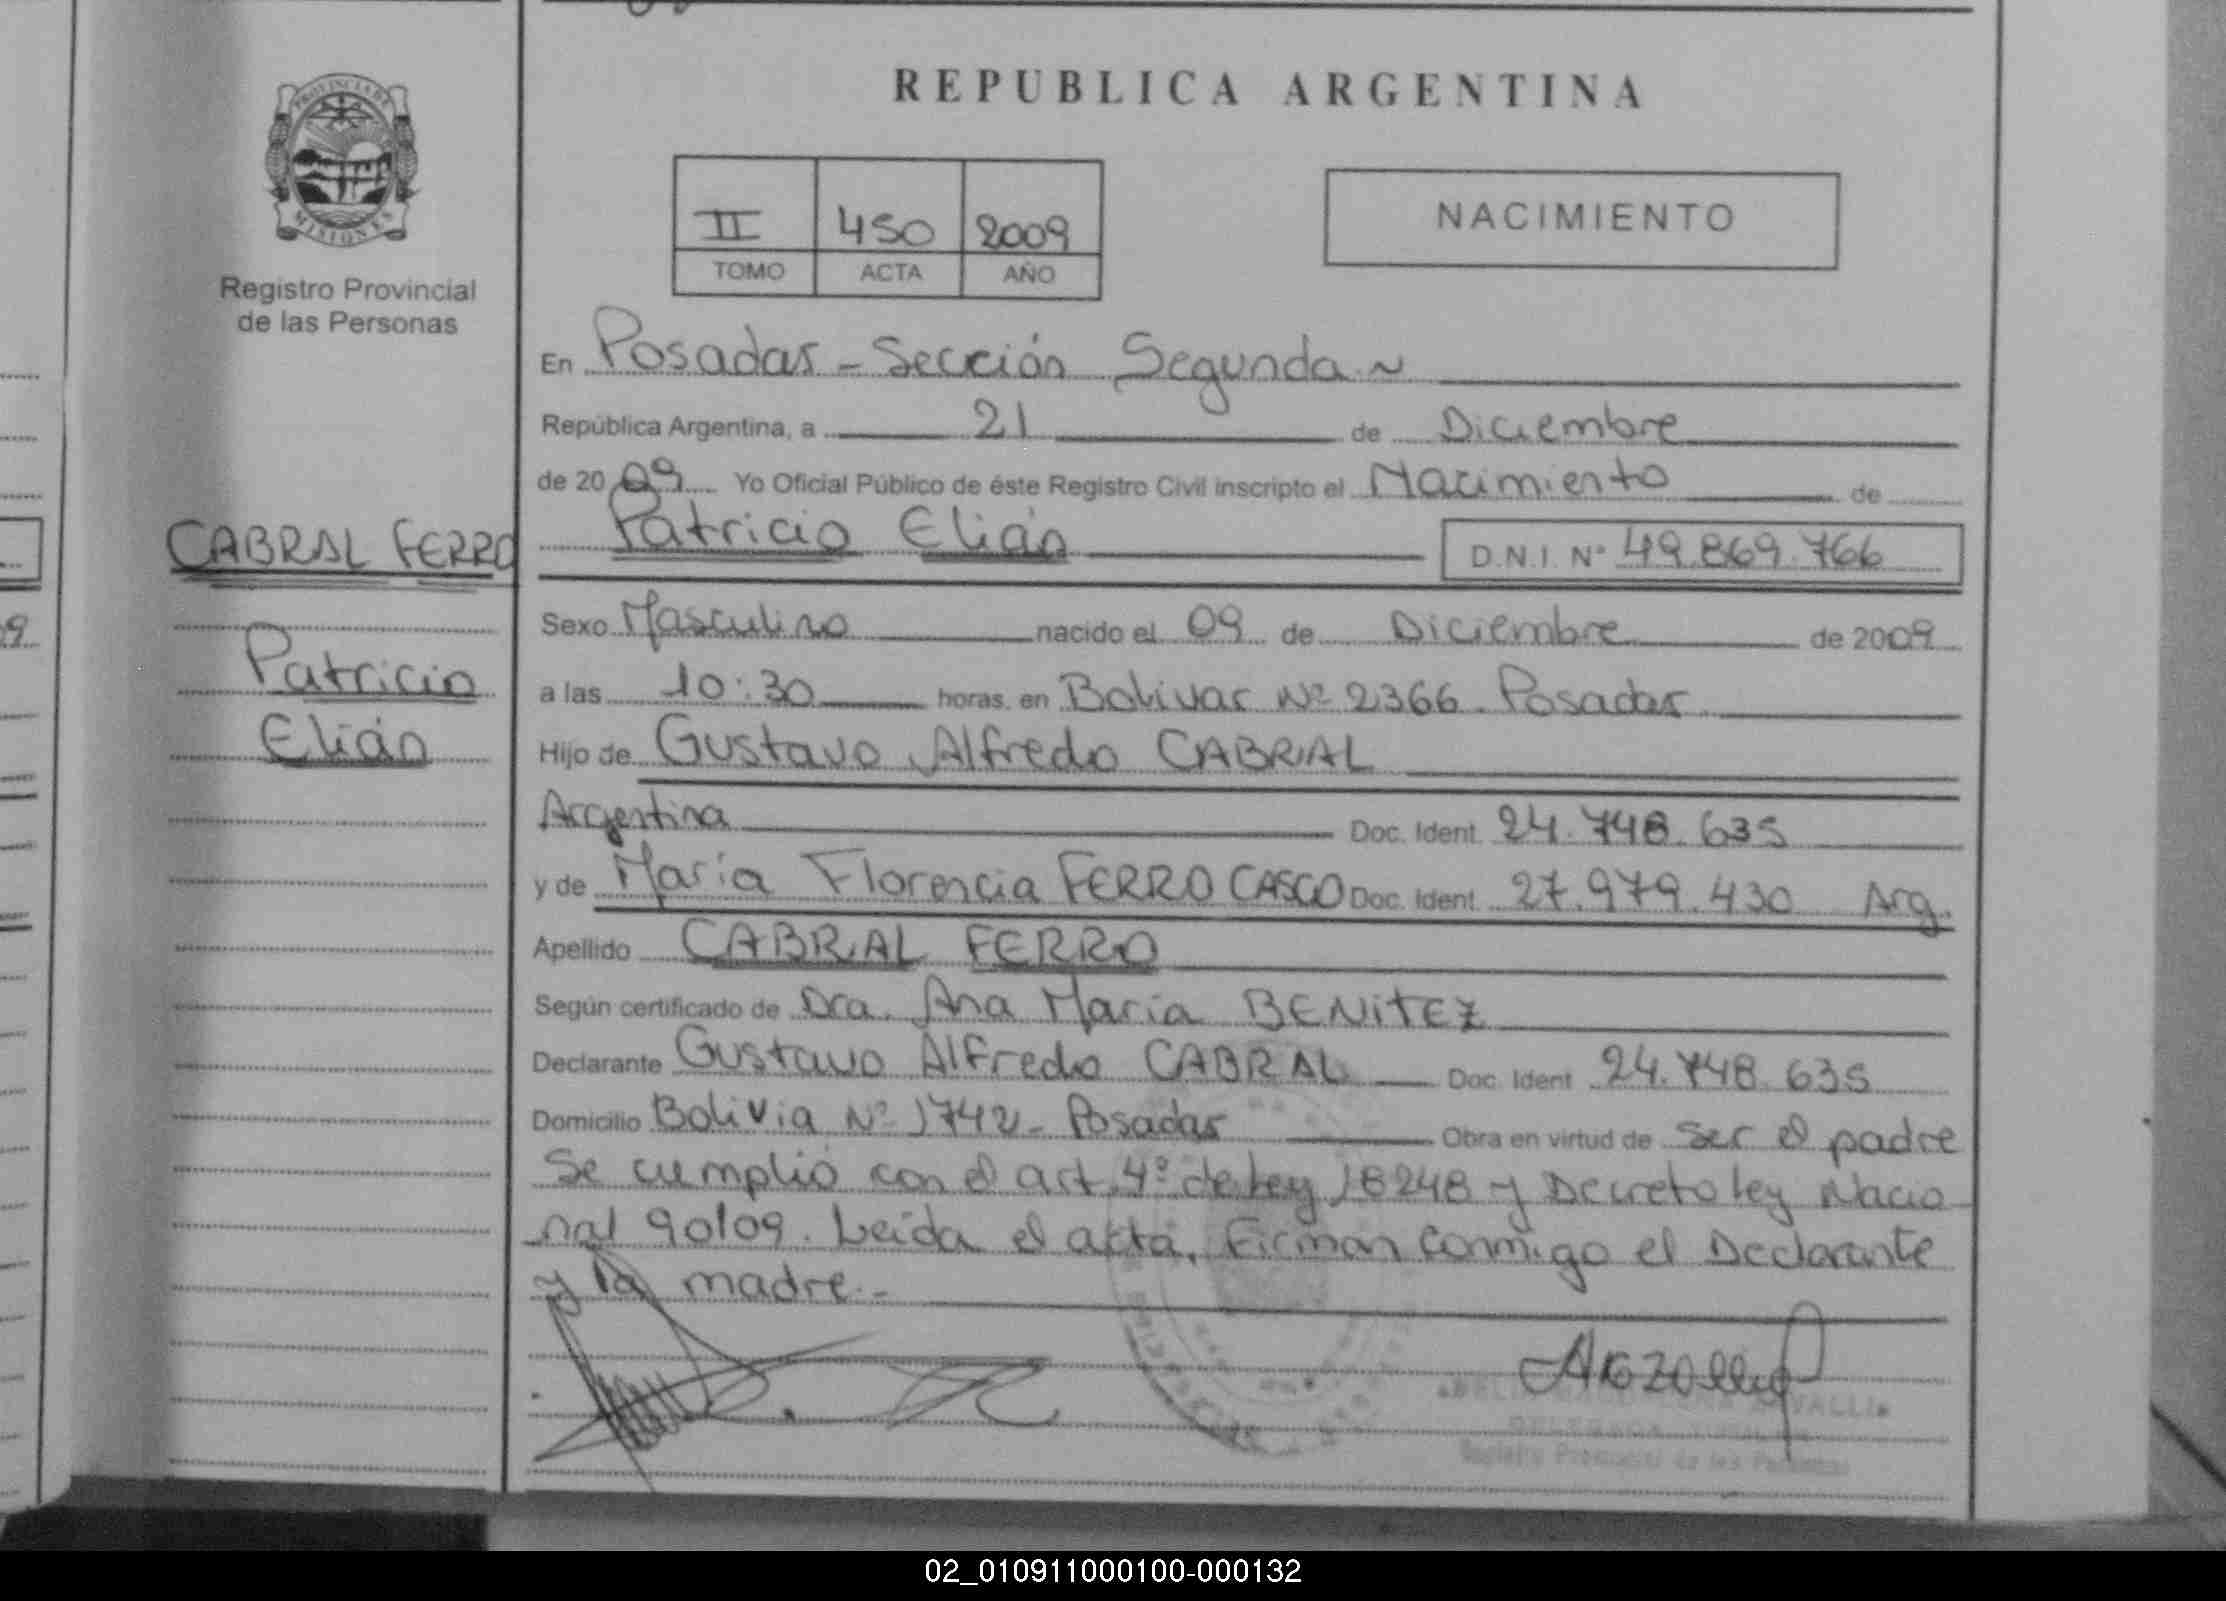 PROVINCIA DE
MISIONES
Registro Provincial
de las Personas
CABRAL FERRO
Patricio
Elián
REPUBLICA ARGENTINA
II 450 2009
TOMO ACTA AÑO
NACIMIENTO
En Posadas - Sección Segunda ~
República Argentina, a 21 de Diciembre
de 2009 Yo Oficial Público de éste Registro Civil inscripto el Nacimiento de
Patricio Elián D.N.I. Nº 49.869.766
Sexo Masculino nacido el 09 de Diciembre de 2009
a las 10:30 horas. en Bolivar Nº 2366. Posadas
Hijo de Gustavo Alfredo CABRAL
Argentina Doc. Ident. 24.748.635
y de María Florencia FERRO CASCO Doc. Ident. 27.979.430 Arg.
Apellido CABRAL FERRO
Según certificado de Dra. Ana María BENITEZ
Declarante Gustavo Alfredo CABRAL Doc. Ident 24.748.635
Domicilio Bolivia Nº 1742 - Posadas Obra en virtud de ser el padre
Se cumplió con el art. 4º de Ley 18248 y Decreto ley Nacio
nal 90/09. Leída el acta, Firman conmigo el Declarante
y la madre.-
Registro Provincial de las Personas
02_010911000100-000132